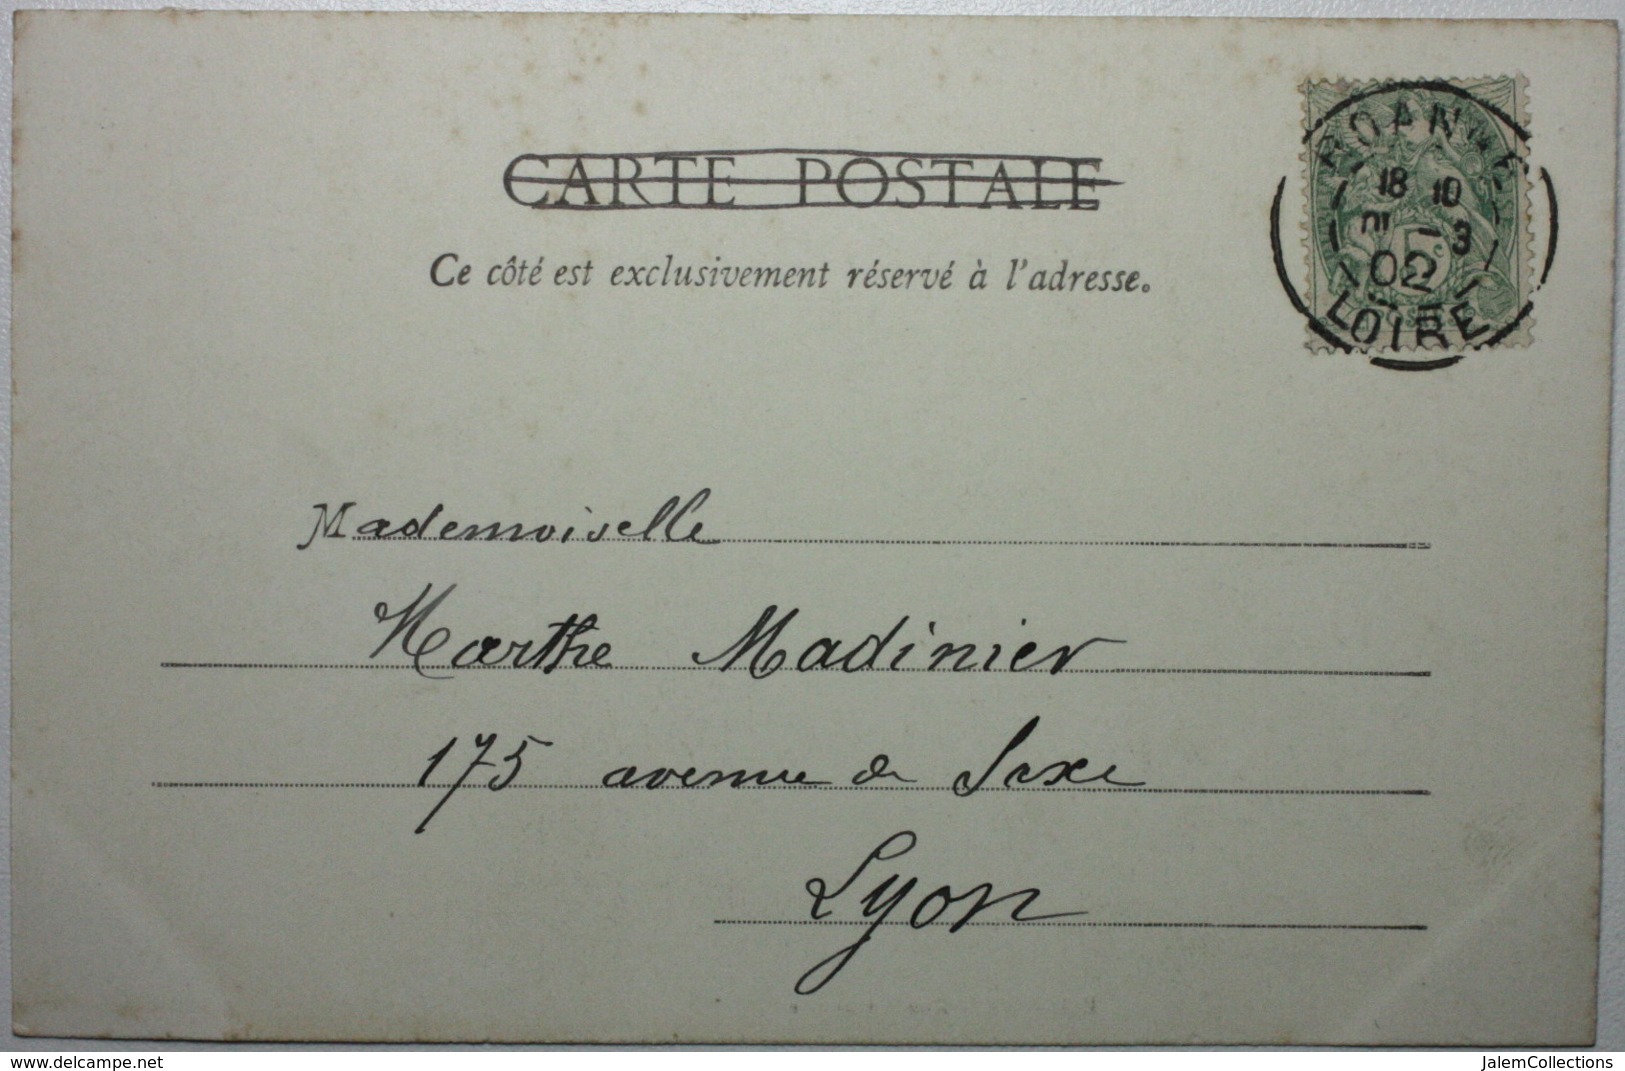 CARTE POSTALE
Ce côté est exclusivement réservé à l'adresse.
ROANNE
18 10
-3
02
LOIRE
5c
Mademoiselle
Marthe Madinier
175 avenue de Saxe
Lyon
delcampe.net
JalemCollections